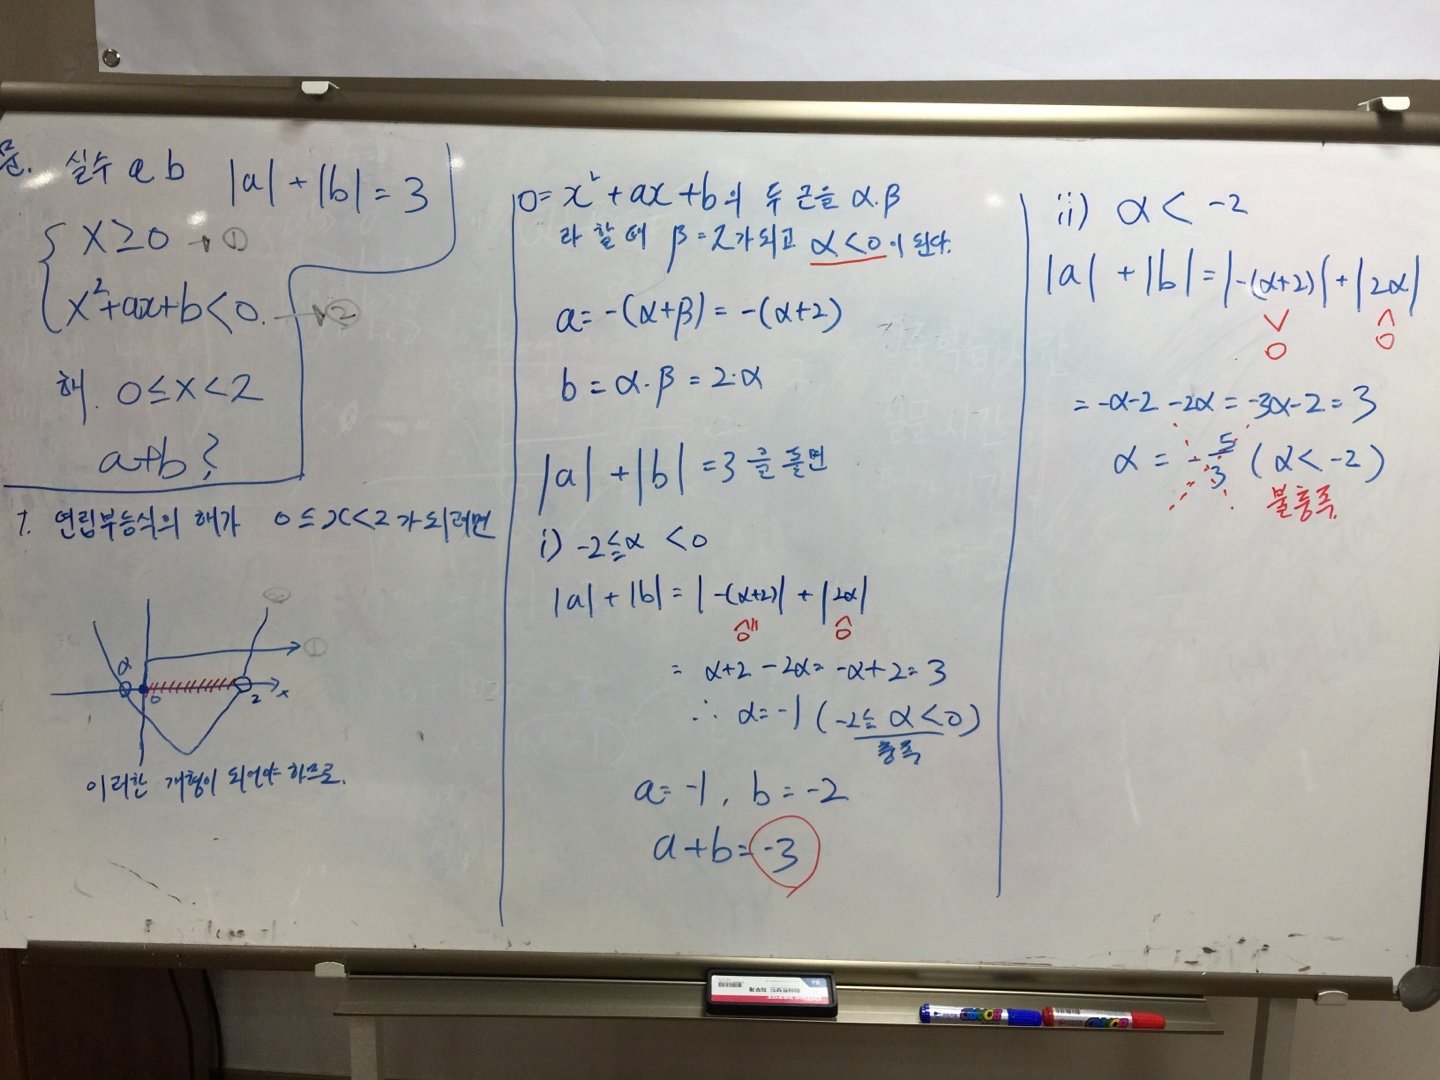 문. 실수 a b |a| + |b| = 3
x ≥ 0 → ①
x² + ax + b < 0. → ②
해. 0 ≤ x < 2
a+b ?
1. 연립부등식의 해가 0 ≤ x < 2 가 되려면
②
①
α 0 2 x
이러한 개형이 되어야 하므로.
0 = x² + ax + b의 두 근을 α.β
라 할 때 β = 2가 되고 α < 0 이 된다.
a = -(α+β) = -(α+2)
b = α·β = 2·α
|a| + |b| = 3 을 풀면
i) -2 ≤ α < 0
|a| + |b| = |-(α+2)| + |2α|
0 0
= α+2 - 2α = -α + 2 = 3
∴ α = -1 (-2 ≤ α < 0)
충족
a = -1, b = -2
a + b = -3
ii) α < -2
|a| + |b| = |-(α+2)| + |2α|
∨ ∧
0 0
= -α-2 - 2α = -3α - 2 = 3
α = -5/3 (α < -2)
불충족.